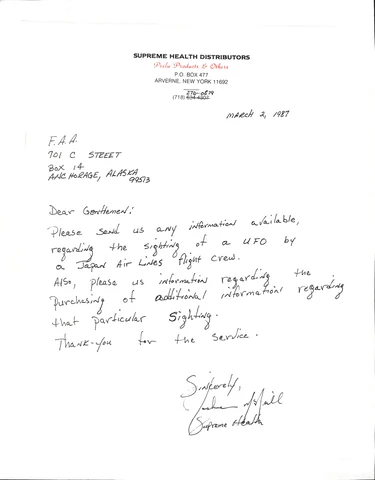 SUPREME HEALTH DISTRIBUTORS
Perla Products & Others
P.O. BOX 477
ARVERNE, NEW YORK 11692
(718)
MARCH 2, 1987
F.A.A.
701 C STREET
BOX 14
ANCHORAGE, ALASKA
99513
Dear Gentlemen:
Please send us any information available,
regarding the sighting of a UFO by
a Japan Air Lines flight crew.
Also, please us information regarding the
purchasing of additional information regarding
that particular sighting.
Thank-you for the service.
Sincerely,
Supreme Health